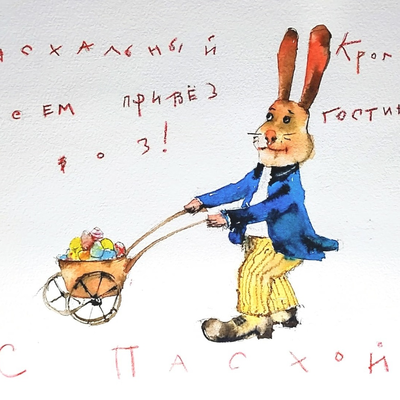 асхальный Крол
сем привёз гостин
воз!
С Пасхой